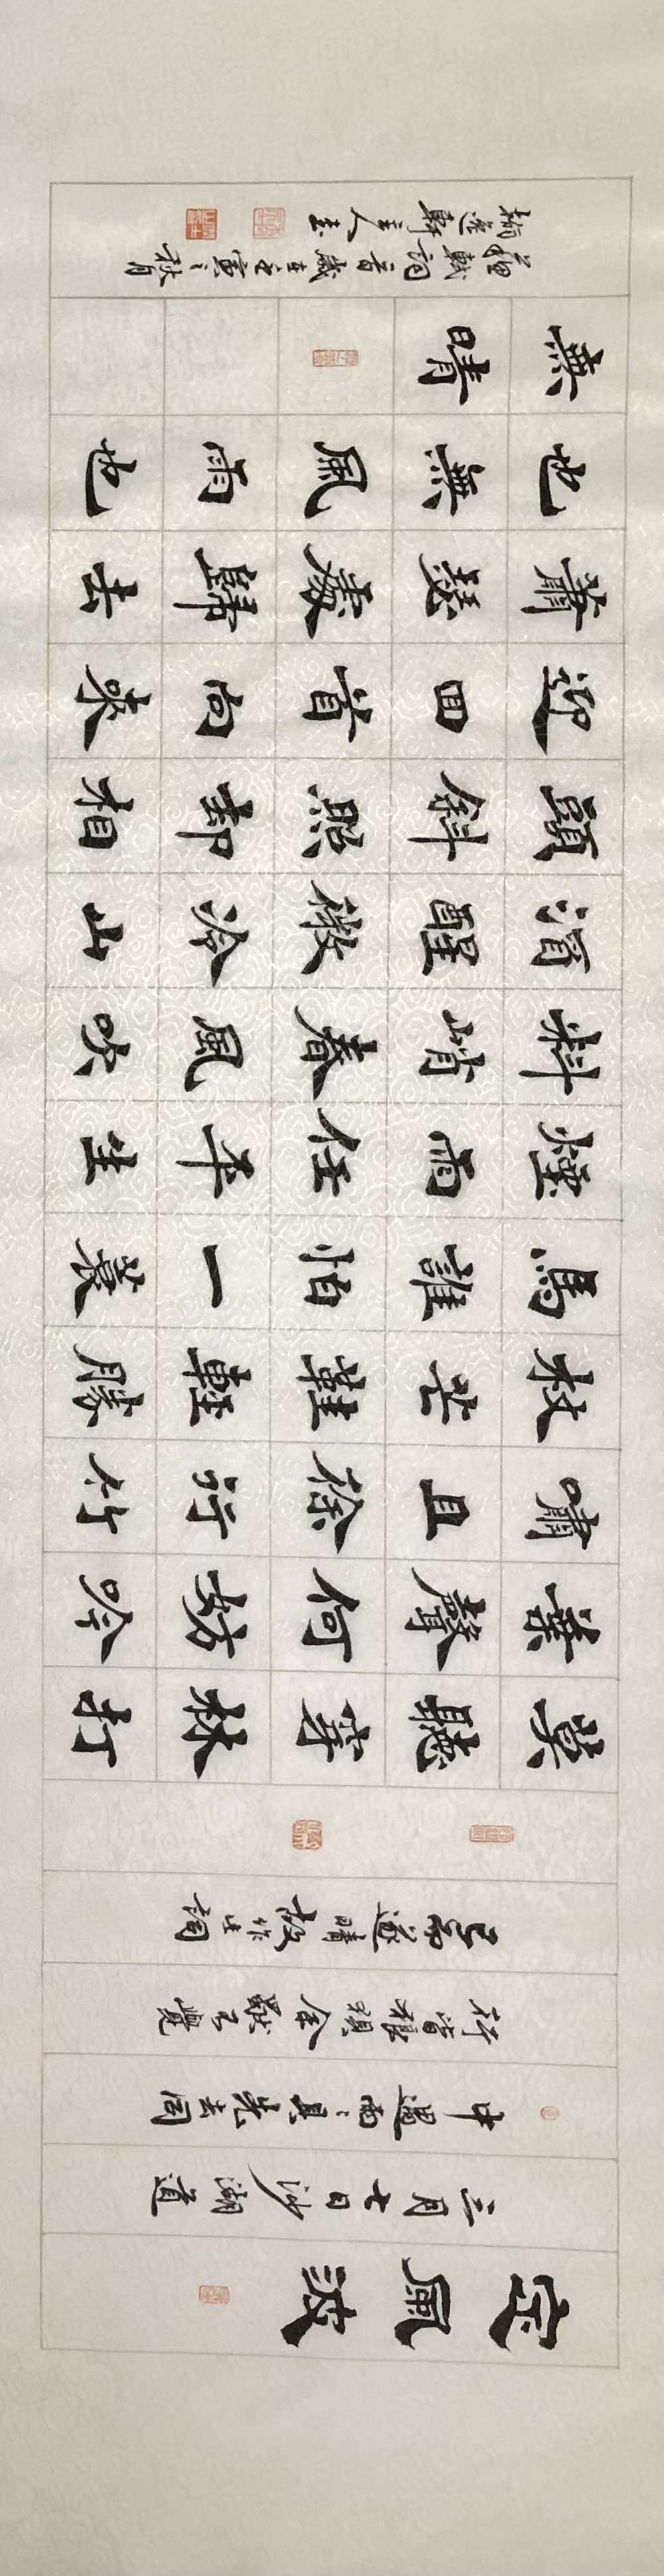 定風波
三月七日沙湖道
中遇雨雨具先去同
行皆狼狽余獨不覺
已而遂晴故作此詞
莫聽穿林打
葉聲何妨吟
嘯且徐行竹
杖芒鞋輕勝
馬誰怕一蓑
煙雨任平生
料峭春風吹
酒醒微冷山
頭斜照却相
迎回首向來
蕭瑟處歸去
也無風雨也
無晴
蘇軾詞一首歲在壬寅之秋月
翰逸軒主人書